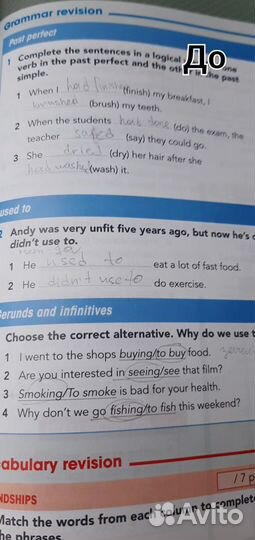 Grammar revision
Past perfect
До
1 Complete the sentences in a logical
verb in the past perfect and the oth past
simple.
1 When I had finished (finish) my breakfast, I
brushed (brush) my teeth.
2 When the students had done (do) the exam, the
teacher (say) they could go.
3 She dried (dry) her hair after she
had washed (wash) it.
used to
2 Andy was very unfit five years ago, but now he's
didn't use to.
1 He used to eat a lot of fast food.
2 He didn't use to do exercise.
Gerunds and infinitives
Choose the correct alternative. Why do we use
1 I went to the shops buying/to buy food.
2 Are you interested in seeing/see that film?
3 Smoking/To smoke is bad for your health.
4 Why don't we go fishing/to fish this weekend?
abulary revision
/7
NDSHIPS
Match the words from each column to complete
the phrases.
Avito